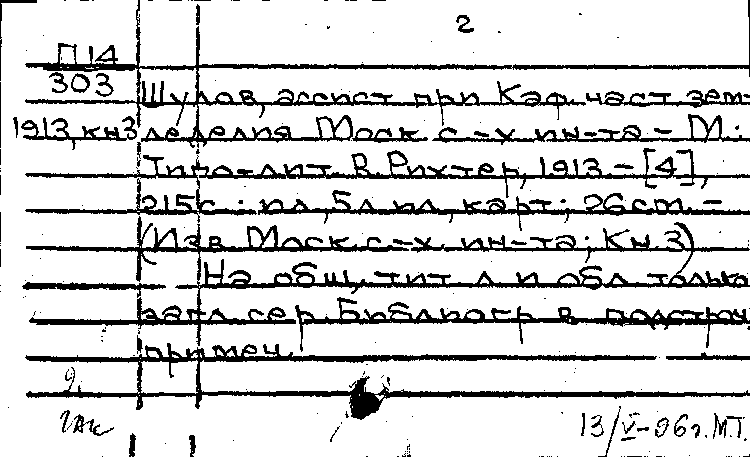 2
П 14
303
1913, кн3
Шулов, ассист. при Каф. част. зем-
леделия Моск. с.-х. ин-та. - М.:
Типо-лит. В. Рихтер, 1913. - [4],
215 с.: ил., 5 л. ил., карт.; 26 см. -
(Изв. Моск. с.-х. ин-та; Кн. 3)
На общ. тит. л. и обл. только
загл. сер. Библиогр. в подстроч.
примеч.
9.
13/V-96г. М.Т.